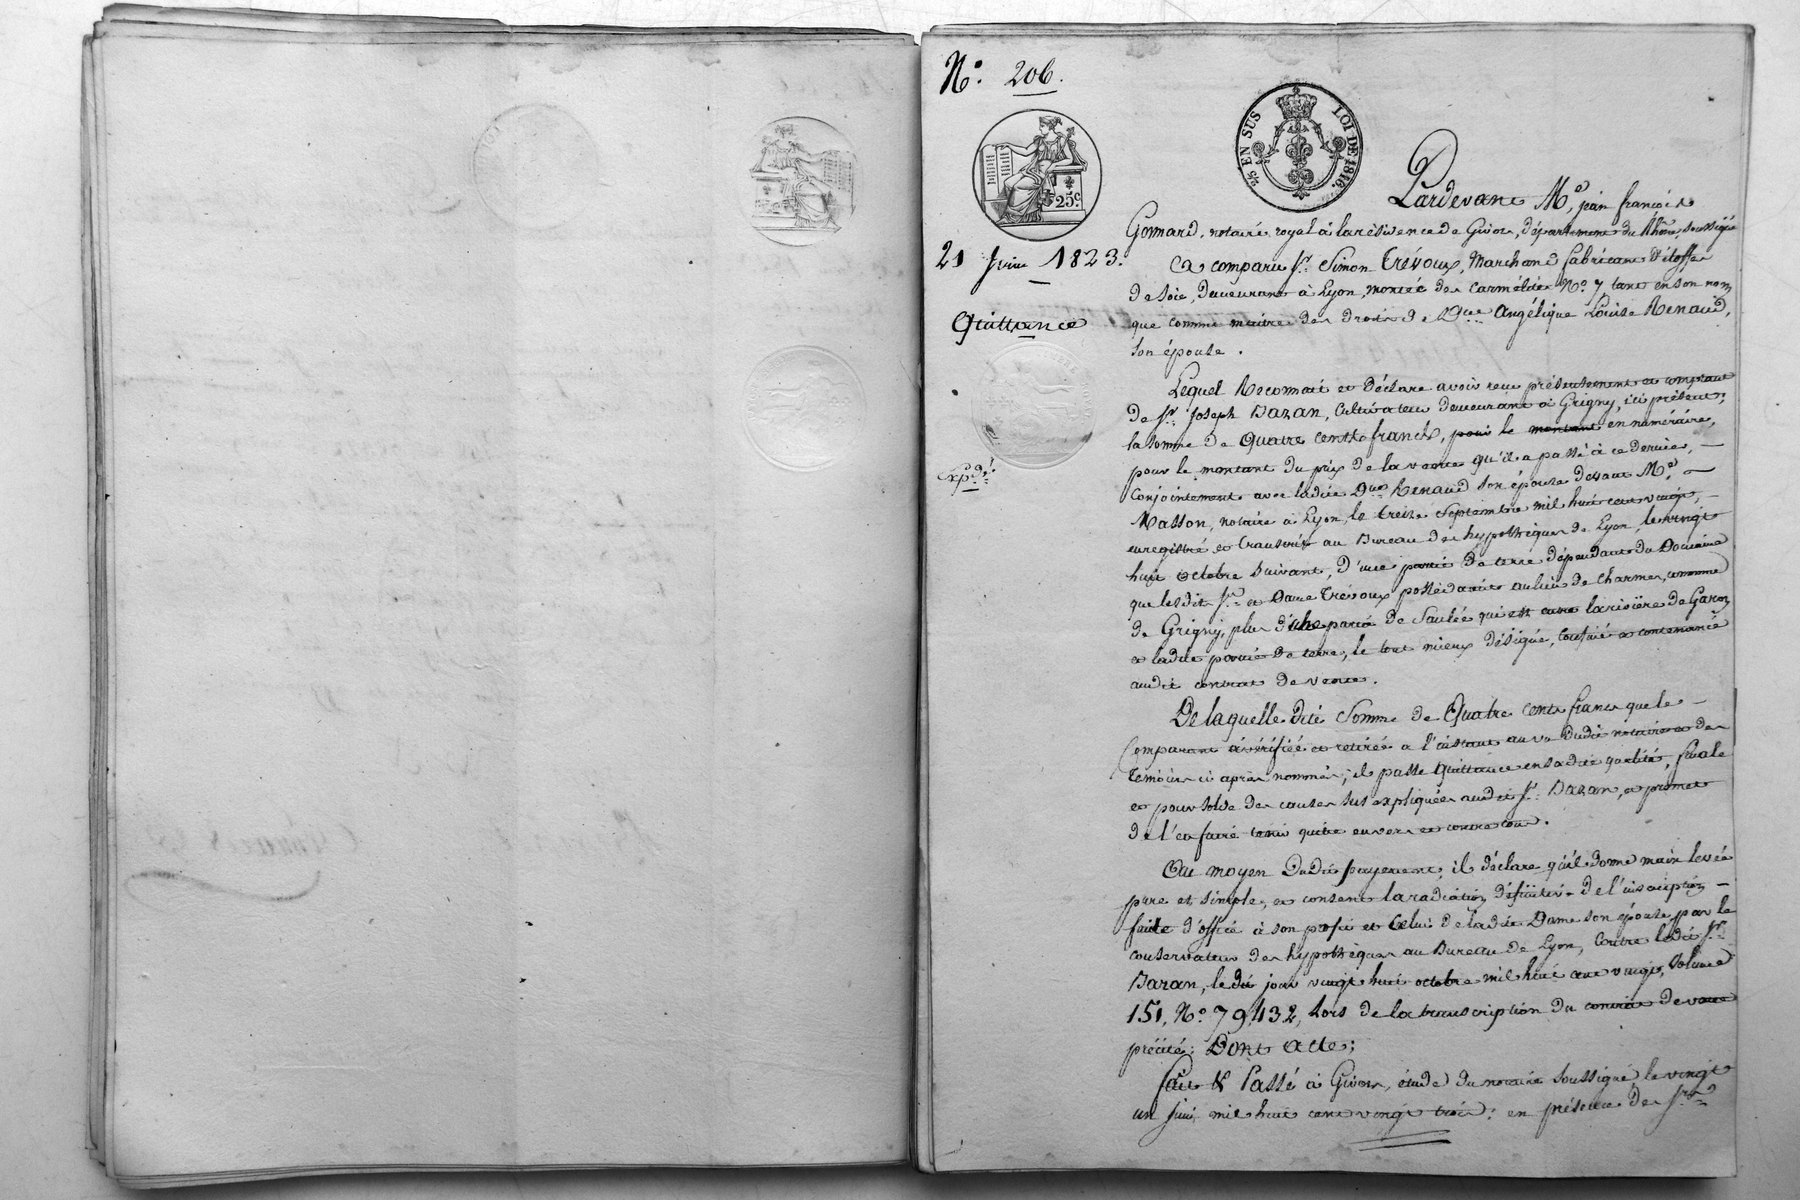 N.° 206.
25 EN SUS LOI DE 1816.
25.c
Pardevant M.e jean françois
Gonnard, notaire royal à la résidence de Givors, département du Rhône, soussigné
21 Juin 1823.
A comparu S.r Simon Trévoux, Marchand fabricant d'étoffes
de soie, demeurant à Lyon, montée des Carmélites N.° 7 tant en son nom
Quittance
que comme maitre des droits de D.me Angélique Louise Renaud,
son épouse.
Lequel Reconnait et déclare avoir reçu présentement et comptant
de S.r Joseph Dazan, Cultivateur demeurant à Grigny, ici présent;
la somme de Quatre cents francs, pour le montant en numéraire,
Exp.dé
pour le montant du prix de la vente qu'il a passé à ce dernier, —
Conjointement avec ladite D.me Renaud son épouse devant M.e —
Masson, notaire à Lyon, le treize Septembre mil huit cent vingt, —
enregistré et transcrit au Bureau des hypothèques de Lyon, le vingt
huit octobre suivant, d'une partie de terre dépendant du Domaine
que lesdits S.r et Dame Trévoux possédaient au lieu de Charmes, commune
de Grigny, plus d'une partie de Saulée qui est entre la rivière de Garon
et ladite partie de terre, le tout mieux désigné, confiné et contenancé
audit contrat de vente.
De laquelle dite Somme de Quatre cents francs que le —
Comparant a vérifiée et retirée a l'instant au vu dudit notaire et des
témoins ci après nommés; il passe Quittance en sadite qualité, finale
et pour solde des causes sus expliquées audit S.r Dazan, et promet
de l'en faire tenir quitte envers et contre tous.
Au moyen dudit payement, il déclare qu'il donne main levée
pure et simple, et consent la radiation définitive de l'inscription —
faite d'office à son profit et Celui de ladite Dame son épouse, par le
conservateur des hypothèques au Bureau de Lyon, Contre ledit S.r
Dazan, le dit jour vingt huit octobre mil huit cent vingt, volume
151, N.° 79,432, Lors de la transcription du contrat de vente
précité; Dont Acte;
fait & Passé à Givors, étude du notaire soussigné, le vingt
un juin mil huit cent vingt trois; en présence de S.rs